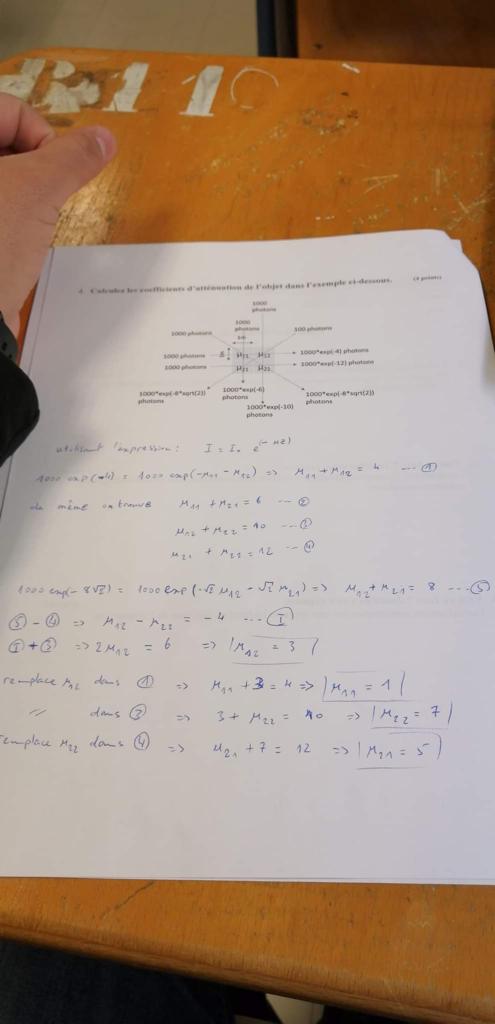 R11
4. Calculez les coefficients d'atténuation de l'objet dans l'exemple ci-dessous. (4 points)
1000
photons
1000
photons
1000 photons
100 photons
1000 photons
μ11 μ12
1000*exp(-4) photons
1000 photons
μ21 μ22
1000*exp(-12) photons
1000*exp(-8*sqrt(2))
photons
1000*exp(-6)
photons
1000*exp(-10)
photons
1000*exp(-8*sqrt(2))
photons
utilisant l'expression : I = I₀ e^(-μz)
1000 exp(-4) = 1000 exp(-μ11 - μ12) => μ11 + μ12 = 4 --- ①
de même on trouve μ11 + μ21 = 6 --- ②
μ12 + μ22 = 10 --- ③
μ21 + μ22 = 12 --- ④
1000 exp(-8√2) = 1000 exp(-√2 μ12 - √2 μ21) => μ12 + μ21 = 8 --- ⑤
⑤ - ④ => μ12 - μ22 = -4 --- Ⓘ
Ⓘ + ③ => 2μ12 = 6 => |μ12 = 3|
remplace μ12 dans ① => μ11 + 3 = 4 => |μ11 = 1|
// dans ③ => 3 + μ22 = 10 => |μ22 = 7|
remplace μ22 dans ④ => μ21 + 7 = 12 => |μ21 = 5|